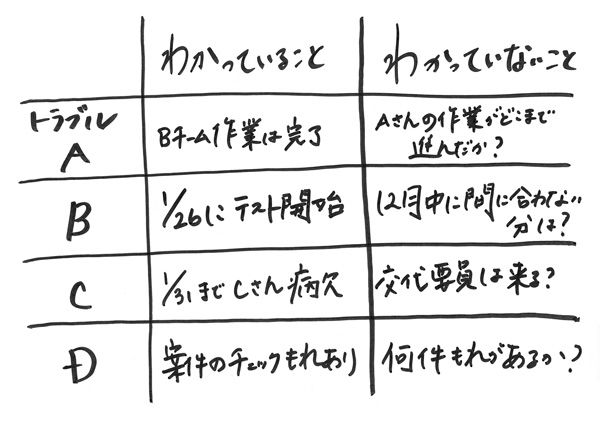 わかっていること
わかっていないこと
トラブル
A
Bチーム作業は完了
Aさんの作業がどこまで
進んだか?
B
1/26にテスト開始
12月中に間に合わない
分は?
C
1/31までCさん病欠
交代要員は来る?
D
案件のチェックもれあり
何件もれがあるか?